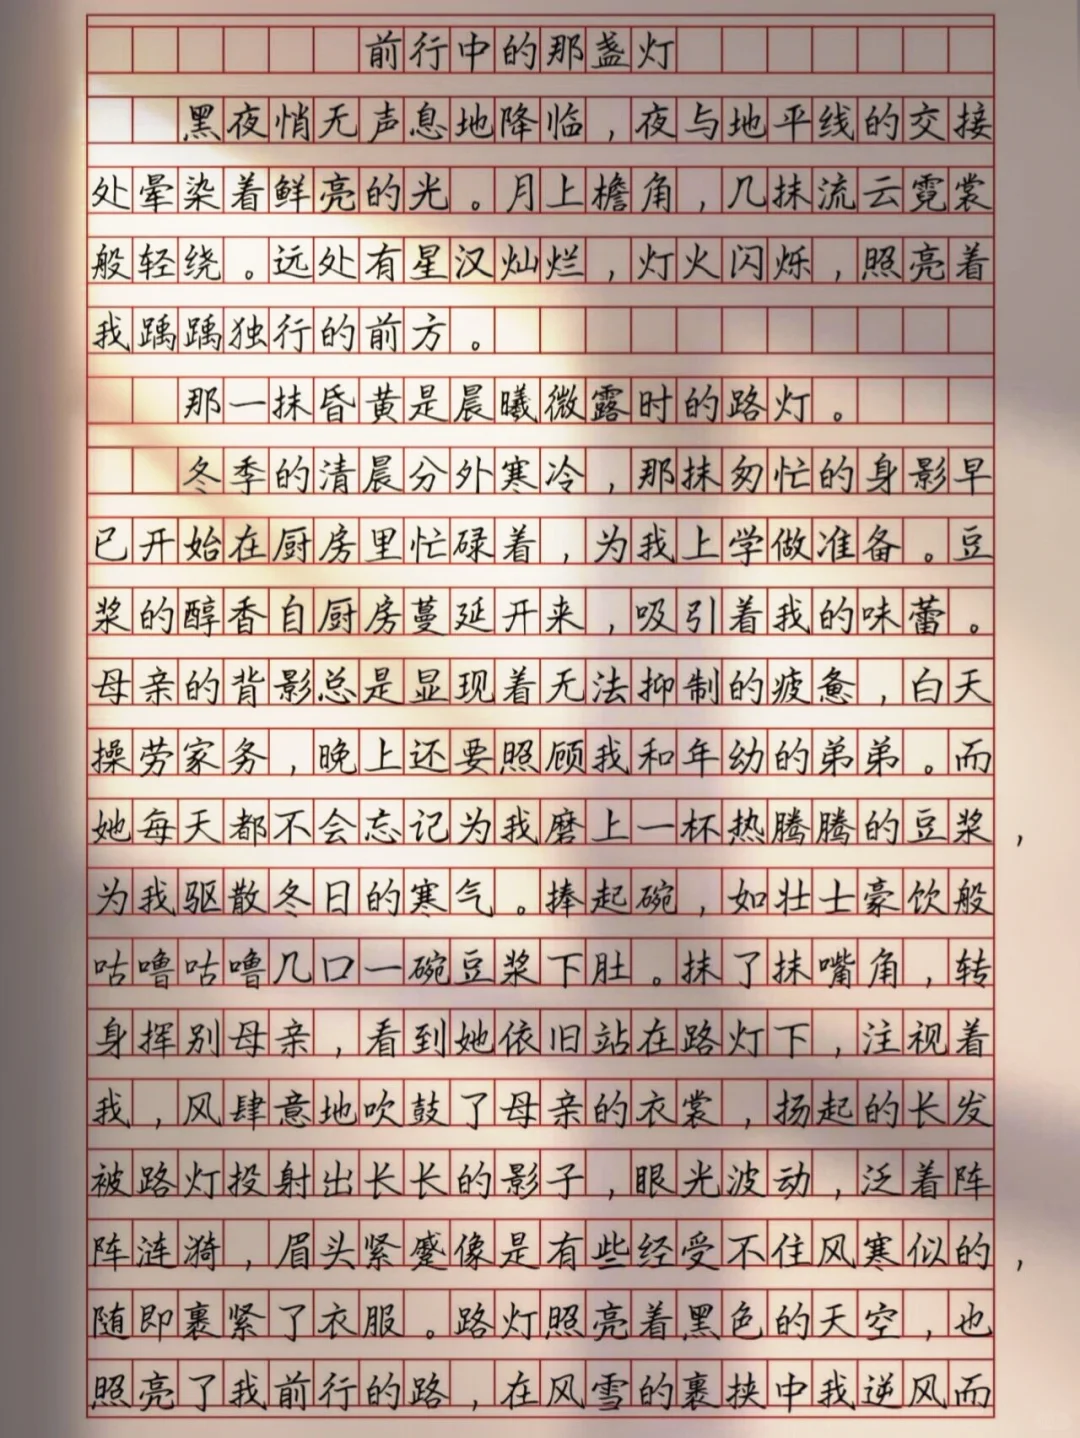 前行中的那盏灯
黑夜悄无声息地降临，夜与地平线的交接
处晕染着鲜亮的光。月上檐角，几抹流云霓裳
般轻绕。远处有星汉灿烂，灯火闪烁，照亮着
我踽踽独行的前方。
那一抹昏黄是晨曦微露时的路灯。
冬季的清晨分外寒冷，那抹匆忙的身影早
已开始在厨房里忙碌着，为我上学做准备。豆
浆的醇香自厨房蔓延开来，吸引着我的味蕾。
母亲的背影总是显现着无法抑制的疲惫，白天
操劳家务，晚上还要照顾我和年幼的弟弟。而
她每天都不会忘记为我磨上一杯热腾腾的豆浆，
为我驱散冬日的寒气。捧起碗，如壮士豪饮般
咕噜咕噜几口一碗豆浆下肚。抹了抹嘴角，转
身挥别母亲，看到她依旧站在路灯下，注视着
我，风肆意地吹鼓了母亲的衣裳，扬起的长发
被路灯投射出长长的影子，眼光波动，泛着阵
阵涟漪，眉头紧蹙像是有些经受不住风寒似的，
随即裹紧了衣服。路灯照亮着黑色的天空，也
照亮了我前行的路，在风雪的裹挟中我逆风而